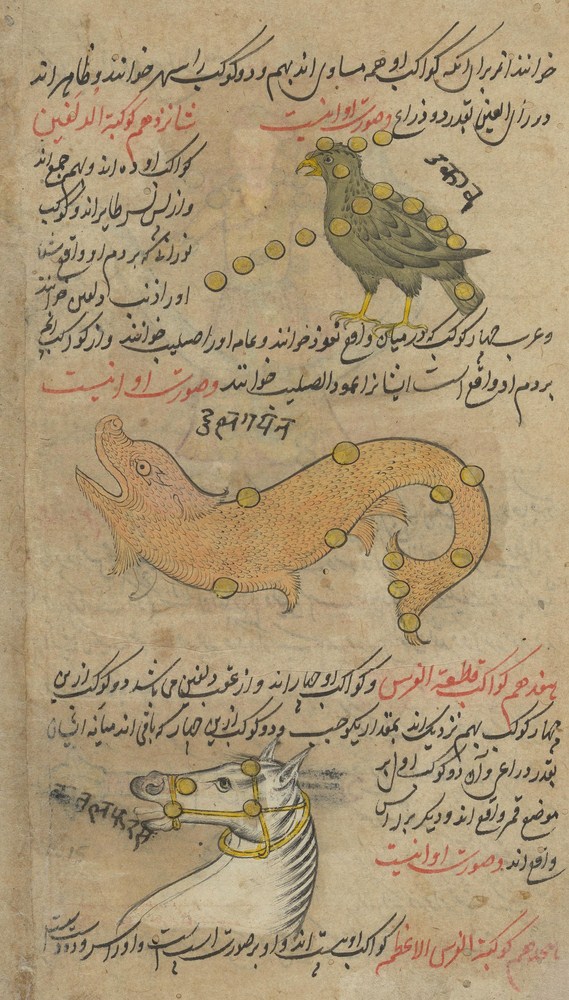 خوانند از بهر آنکه کواکب او همه مساوی اند بهم و دو کوکب را سهر خوانند و ظاهر اند
در رأی العین بقدر دو ذراع و صورت او اینست
شانزدهم کوکبة الدلفین
کواکب او ده اند و بهم جمع اند
و از پس نسر طایر اند و کوکب
که بر دم او واقع
او را ذنب دلفین خوانند
و عرب چهار کوکب که در میان واقع خوانند و عامه او را صلیب خوانند و از کواکب آنچه
بر دم او واقع است این را عمود الصلیب خوانند و صورت او اینست
هفدهم کواکب قطعة الفرس و کواکب او چهار اند و از عقب دلفین می باشد دو کوکب ازین
چهار کوکب بهم نزدیک اند بمقدار یک وجب و دو کوکب ازین چهار که باقی اند میانه ایشان
بقدر ذراعی و آن دو کوکب اول بر
موضع فم واقع اند و دیگر بر راس
واقع اند و صورت او اینست
کوکبة الفرس الاعظم کواکب او بیست اند و او بر صورت اسپ است و او را سر و دو دست